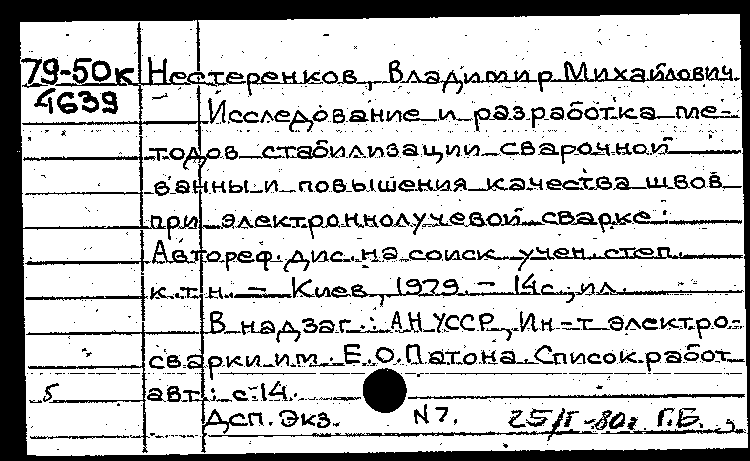 79-50к Нестеренков, Владимир Михайлович
4639
Исследование и разработка ме-
тодов стабилизации сварочной
ванны и повышения качества швов
при электроннолучевой сварке:
Автореф. дис. на соиск. учен. степ.
к.т.н. – Киев, 1979. – 14с., ил.
В надзаг.: АН УССР, Ин-т электро-
сварки им. Е.О.Патона. Список работ
5 авт.: с.14.
Дсп. Экз. N7. 25/I-80г Г.Б.